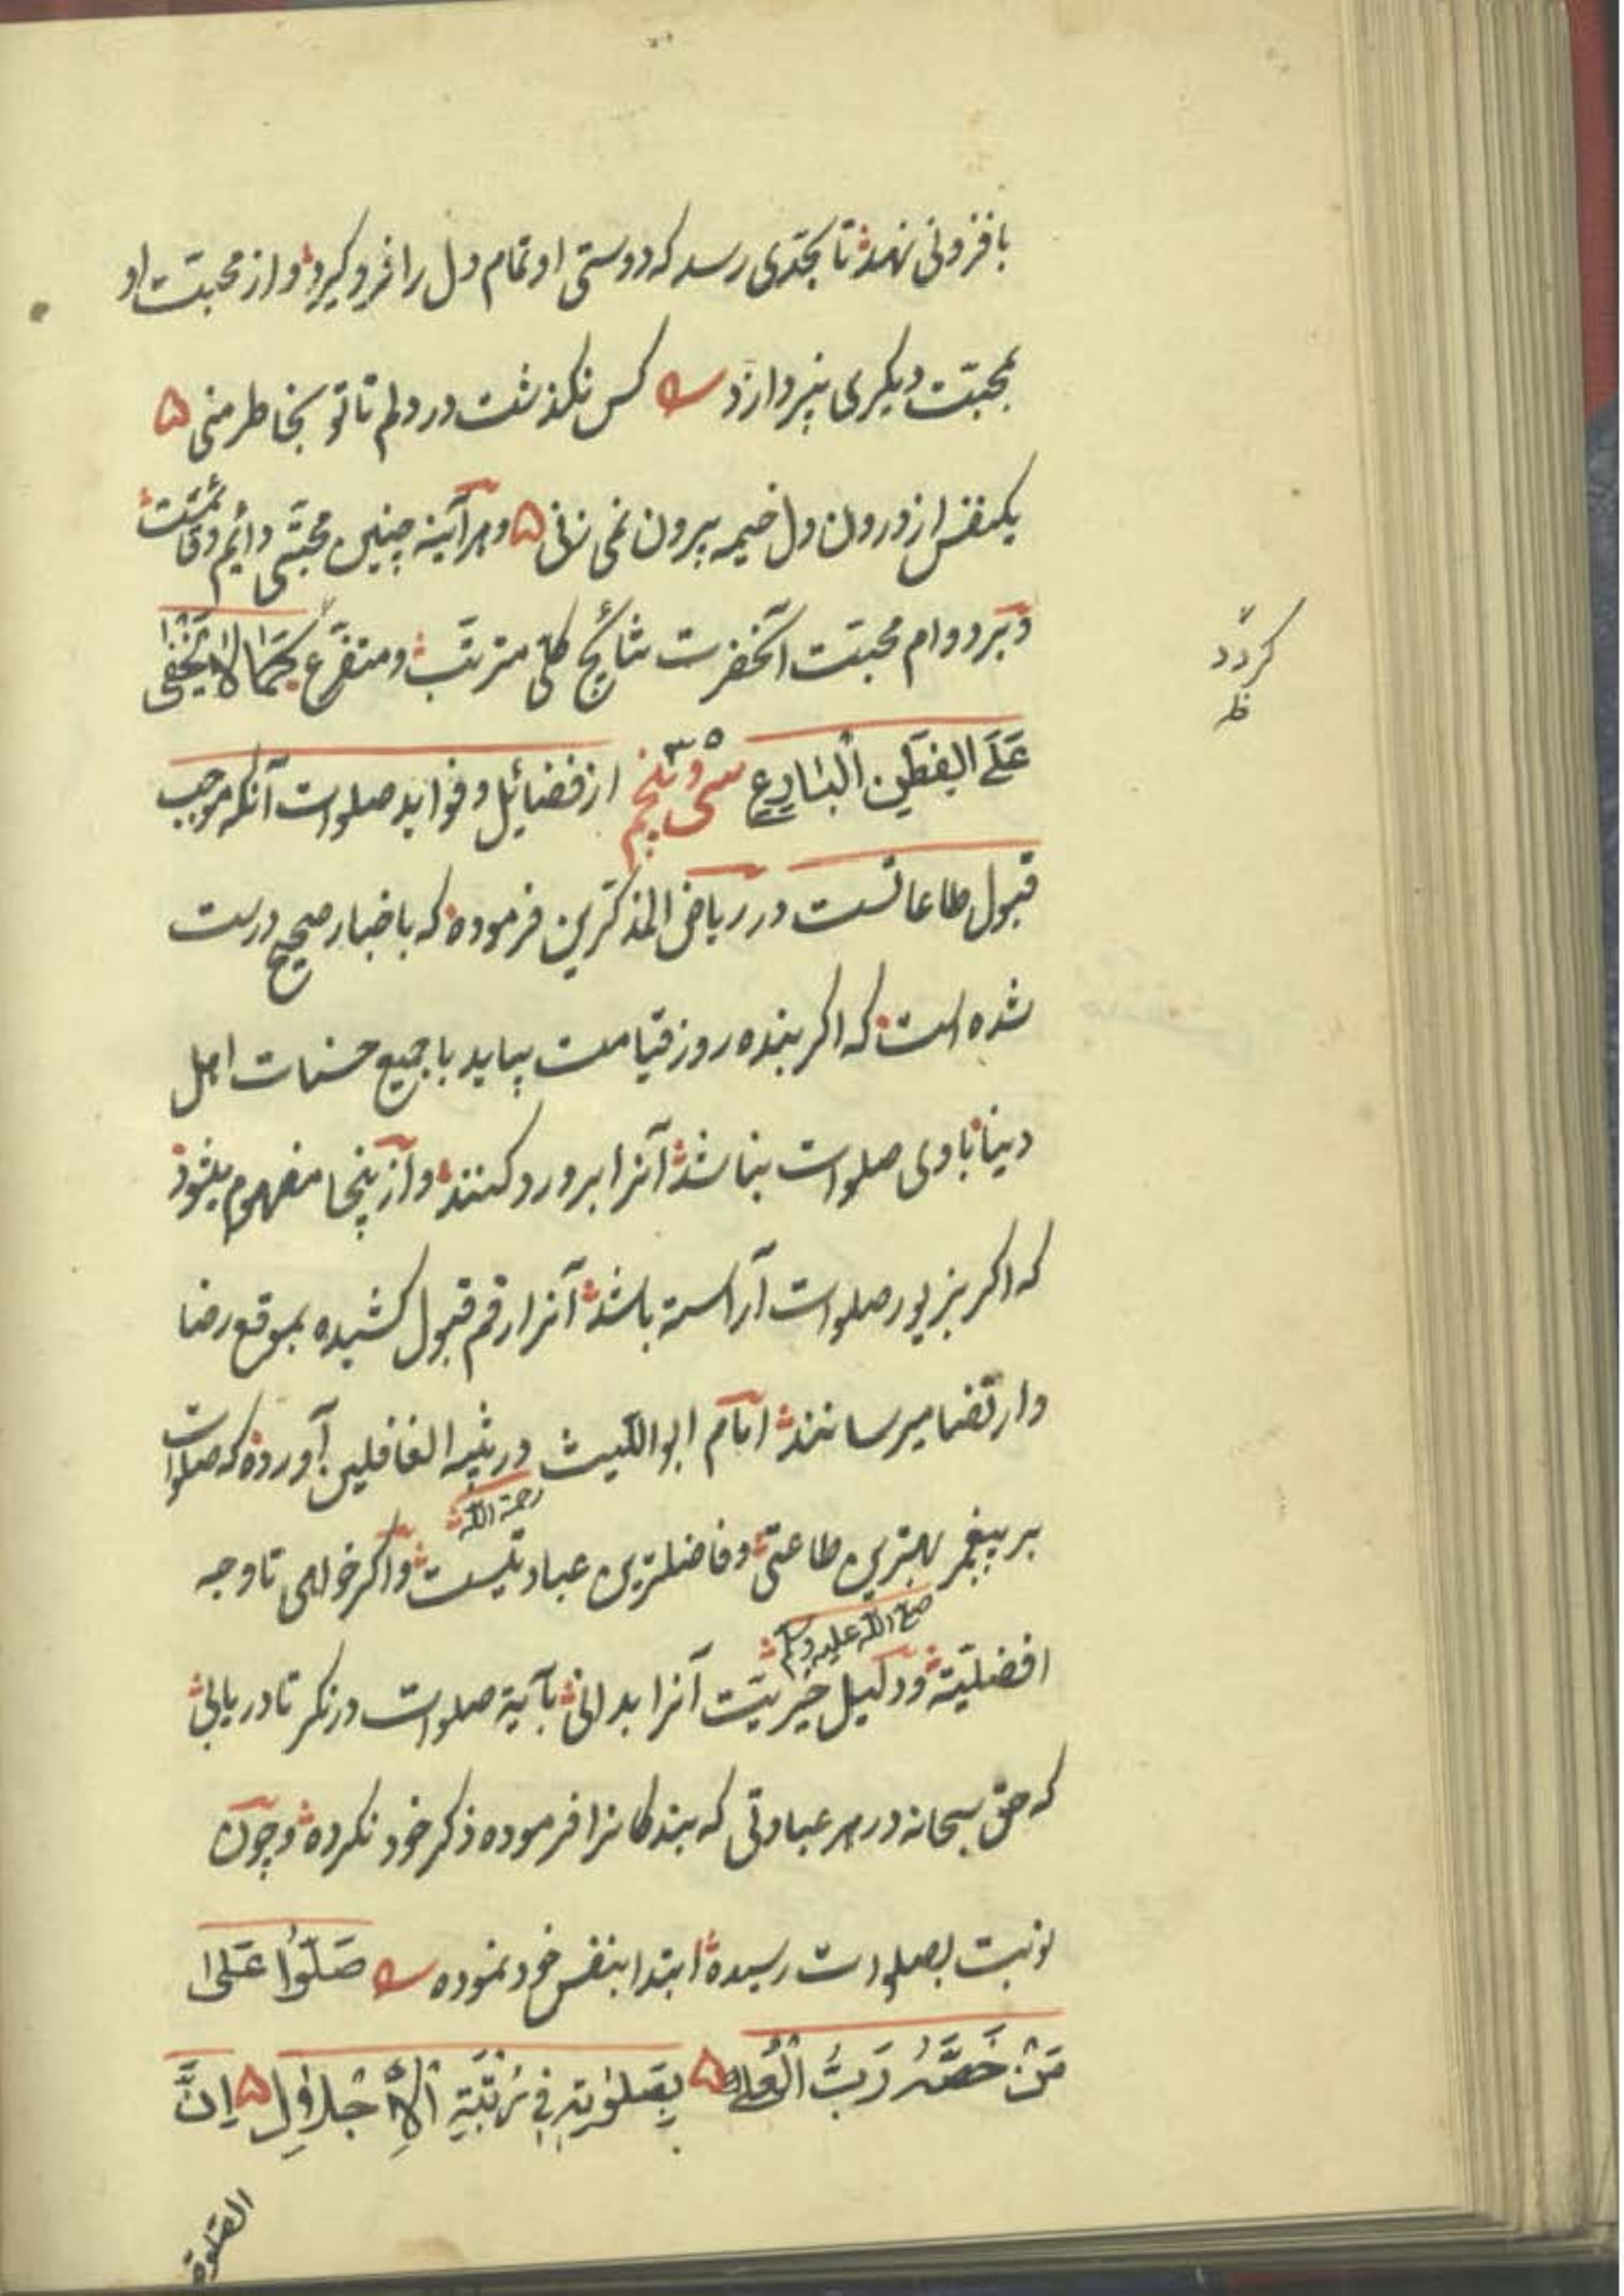 بافزونی نهد تا بحدی رسد که دوستی او تمام دل را فرو کیرد و از محبت او
بمحبت دیکری نپردازد کس نکذشت در دلم تا تو بخاطر منی ۵
یکنفس از درون دل خیمه بیرون نمی زنی ۵ و هر آینه چنین محبتی دائم و قائمست
و بر دوام محبت آنحضرت نتائج کلی مترتب و متفرع کَمَا لَا یَخْفٰی
کردد
ظ
عَلَی الفَطِنِ البَارِعِ سی و پنجم ۳۵ از فضائل و فواید صلوات آنکه موجب
قبول طاعاتست در ریاض المذکرین فرموده که باخبار صحیح درست
شده است که اکر بنده روز قیامت بیاید با جمیع حسنات اهل
دنیا با وی صلوات نباشد آنرا برو رد کنند و از ینجا مفهوم میشود
که اکر بزیور صلوات آراسته باشد آنرا رقم قبول کشیده بموقع رضا
و ارتضا میرسانند امام ابو اللیث در تنبیه الغافلین آورده که صلوات
رحمة الله
بر پیغمبر بهترین طاعتی و فاضلترین عبادتیست و اکر خواهی تا وجه
صلی الله علیه وسلم
افضلیته و دلیل خیریت آنرا بدانی بآیة صلوات درنکر تا دریابی
که حق سبحانه در هر عبادتی که بندکانرا فرموده ذکر خود نکرده و چون
نوبت بصلوات رسیده ابتدا بنفس خود نموده صَلُّوا عَلٰی
مَنْ خَصَّهُ رَبُّ الْعُلٰی ۵ بِصَلٰوتِهِ فِی رُتْبَةِ الْاِجْلَالِ ۵ اِنَّ
الصلوة